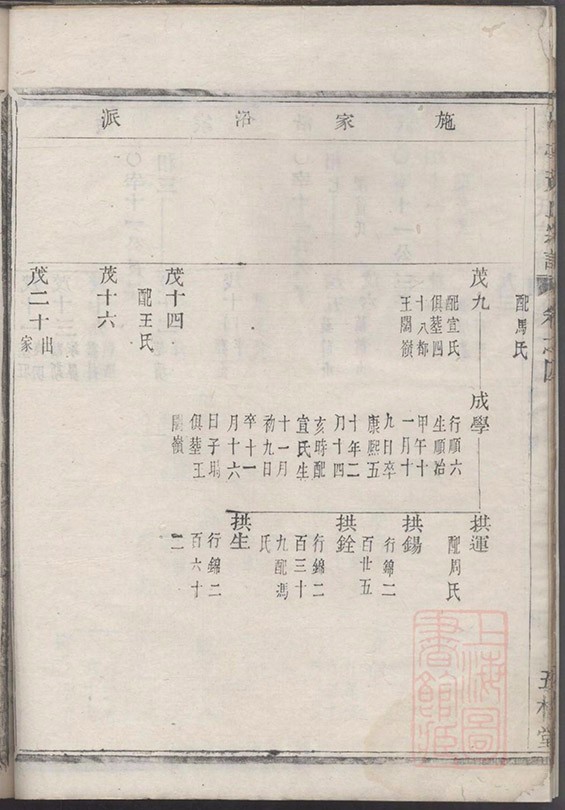 施家沿派
配馬氏
茂九
配宣氏
俱葬四
十八都
王閣嶺
成學
行順六
生順治
甲午十
一月十
九日卒
康熙五
十年二
月十四
亥時配
宣氏生
十一月
初九日
卒十一
月十六
日子塲
俱葬王
閣嶺
拱運
配周氏
拱錫
行錦二
百廿五
拱銓
行錦二
百三十
九配馮
氏
拱生
行錦二
百六十
二
茂十四
配王氏
茂十六
茂二十出
家
卷之四
上海圖
書館藏